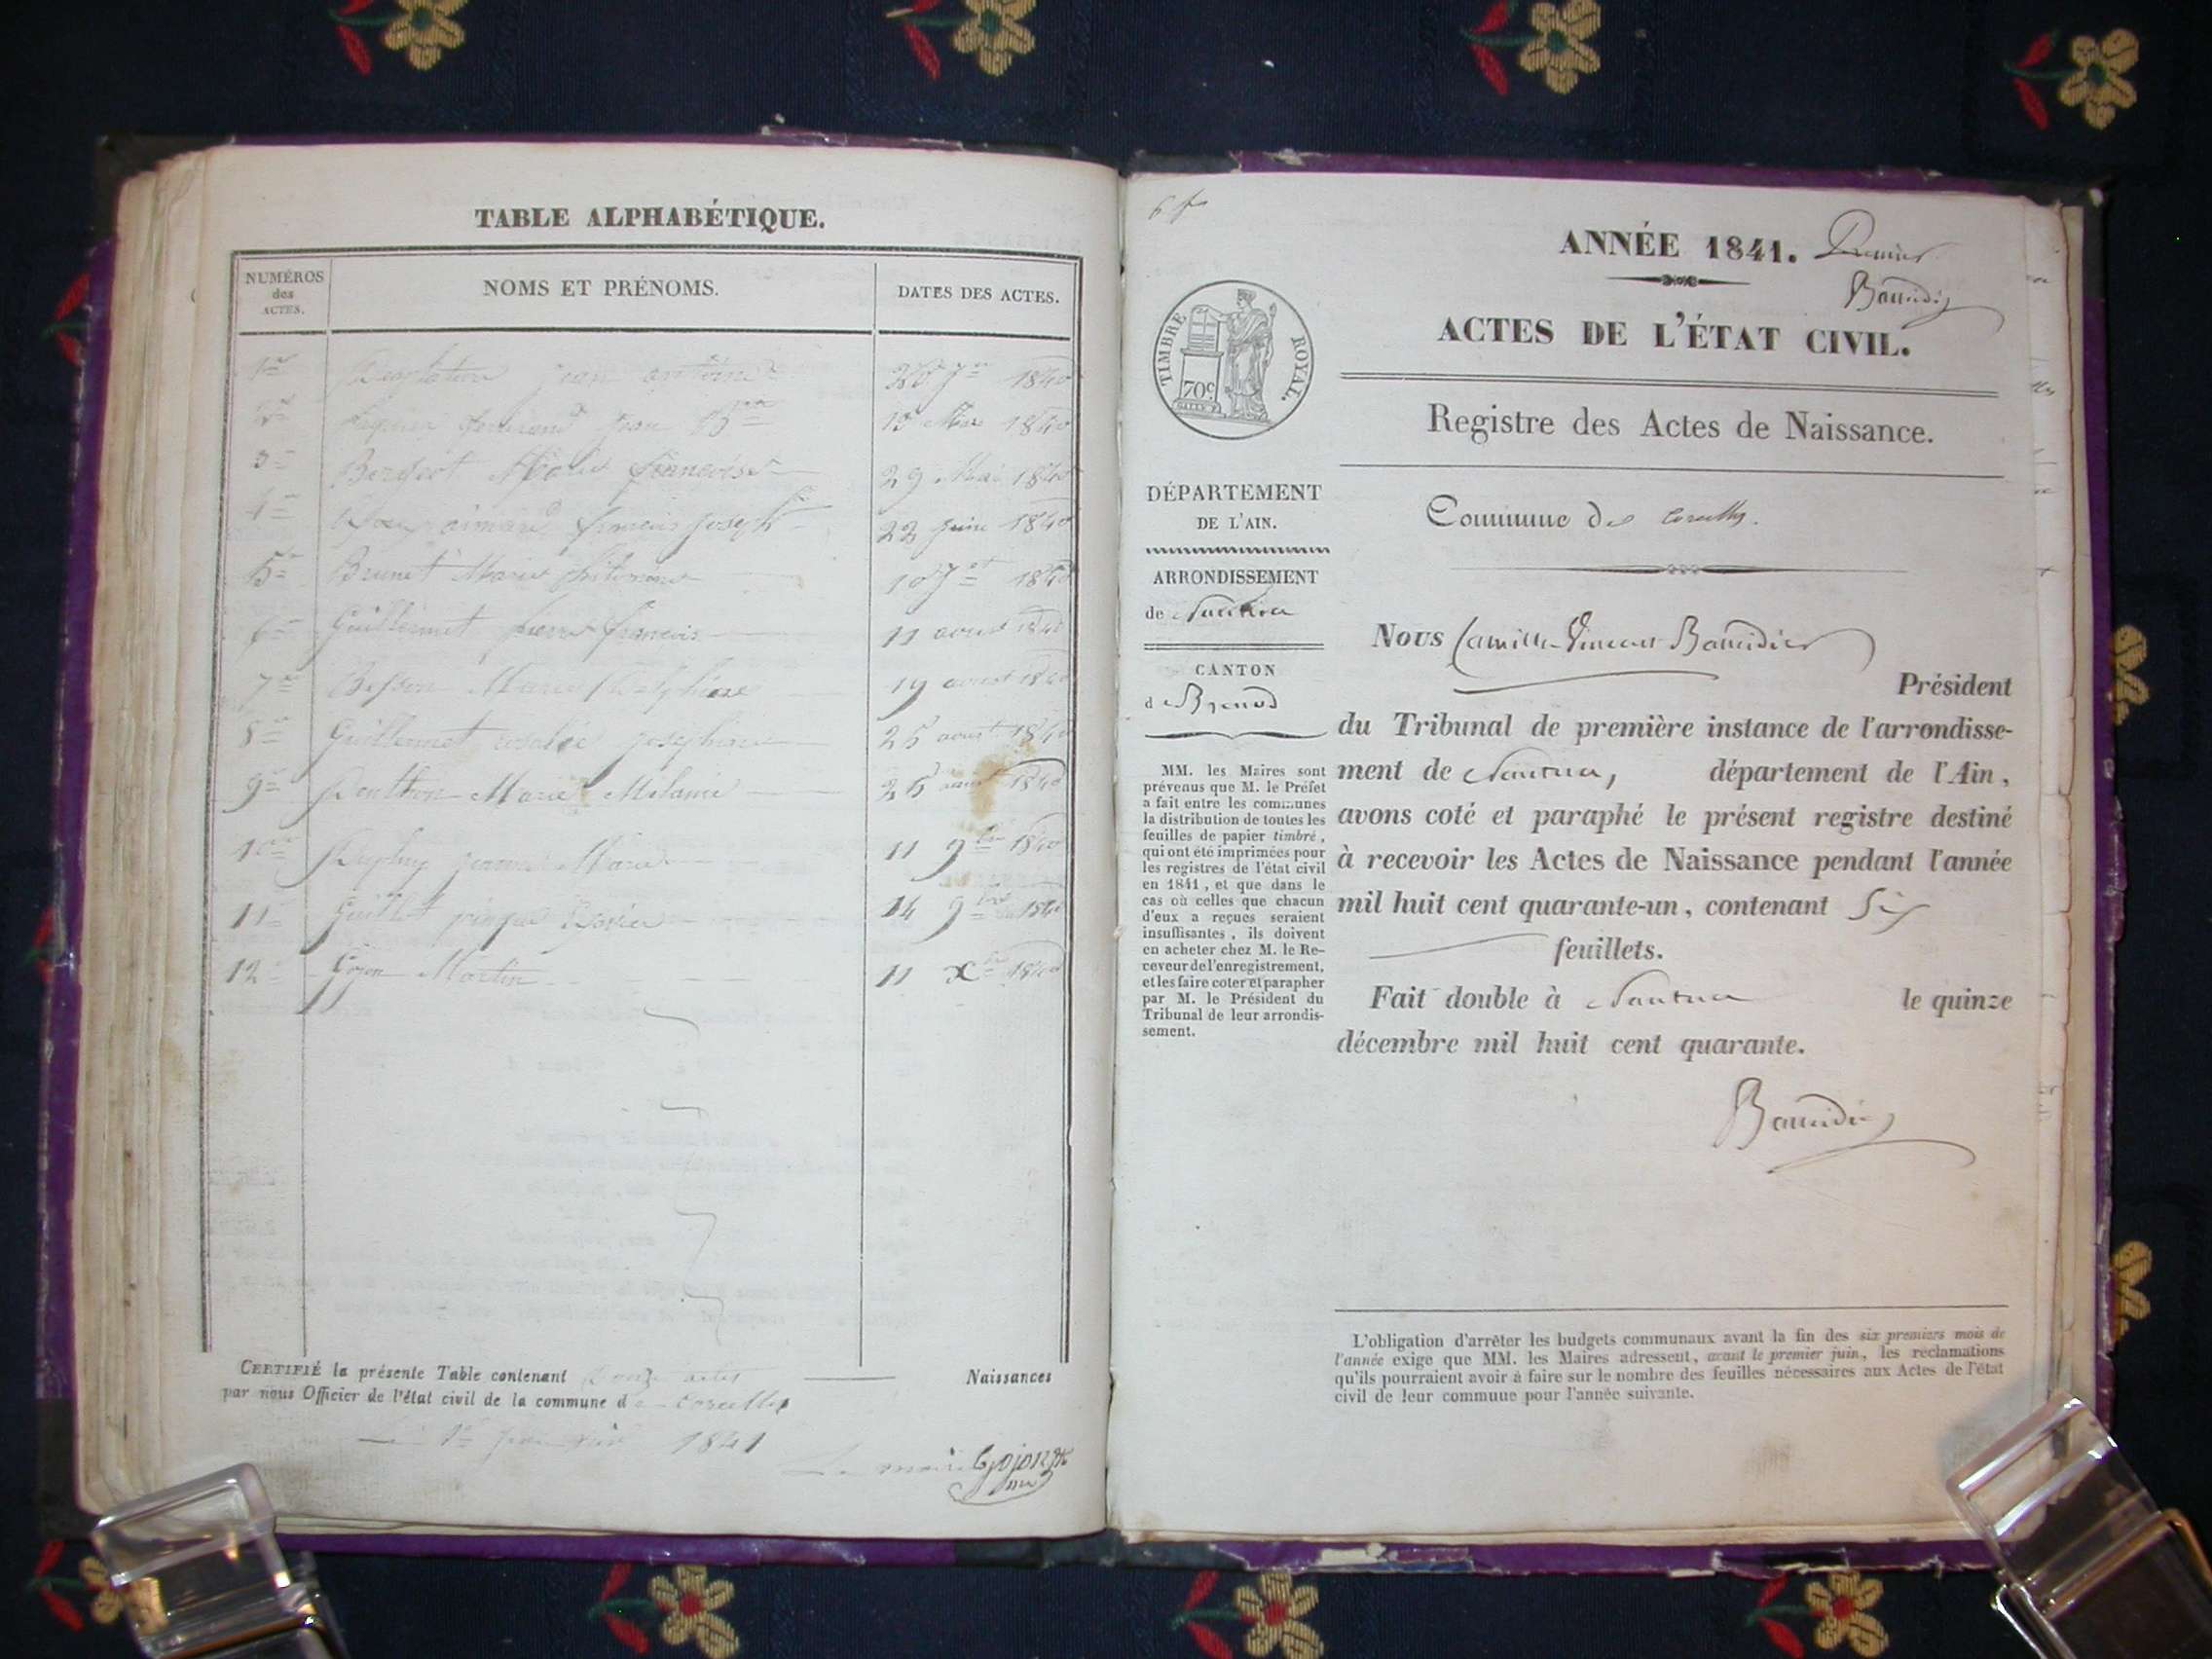 TABLE ALPHABÉTIQUE.
NUMÉROS
des
ACTES.
NOMS ET PRÉNOMS.
DATES DES ACTES.
jean antoine 1840
jean 1840
3 Marie françoise 29 Mai 1840
4 aimard françois joseph 22 juin 1840
5 Brunet Marie 1840
6 Guillermet pierre françois 11 aoust 1840
7 Besson Marie 19 aoust 1840
8 Guillermet rosalie joséphine 25 aoust 1840
9 Ponthon Marie Mélanie 26 1840
10 jeanne Marie 11 9bre 1840
11 Guillet 14 9bre 1840
12 Martin 11 Xbre 1840
CERTIFIÉ la présente Table contenant douze actes Naissances
par nous Officier de l'état civil de la commune de Corcelles
1er janvier 1841
Le maire
6 f
ANNÉE 1841. Premier
Baudier
ACTES DE L'ÉTAT CIVIL.
TIMBRE ROYAL.
70c
Registre des Actes de Naissance.
DÉPARTEMENT
DE L'AIN.
ARRONDISSEMENT
de Nantua
CANTON
de Brenod
MM. les Maires sont
prévenus que M. le Préfet
a fait entre les communes
la distribution de toutes les
feuilles de papier timbré,
qui ont été imprimées pour
les registres de l'état civil
en 1841, et que dans le
cas où celles que chacun
d'eux a reçues seraient
insuffisantes, ils doivent
en acheter chez M. le Re-
ceveur de l'enregistrement,
et les faire coter et parapher
par M. le Président du
Tribunal de leur arrondis-
sement.
Commune de Corcelles.
Nous Camille Vincent
Président
du Tribunal de première instance de l'arrondisse-
ment de Nantua, département de l'Ain,
avons coté et paraphé le présent registre destiné
à recevoir les Actes de Naissance pendant l'année
mil huit cent quarante-un, contenant Six
feuillets.
Fait double à Nantua le quinze
décembre mil huit cent quarante.
L'obligation d'arrêter les budgets communaux avant la fin des six premiers mois de
l'année exige que MM. les Maires adressent, avant le premier juin, les réclamations
qu'ils pourraient avoir à faire sur le nombre des feuilles nécessaires aux Actes de l'état
civil de leur commune pour l'année suivante.